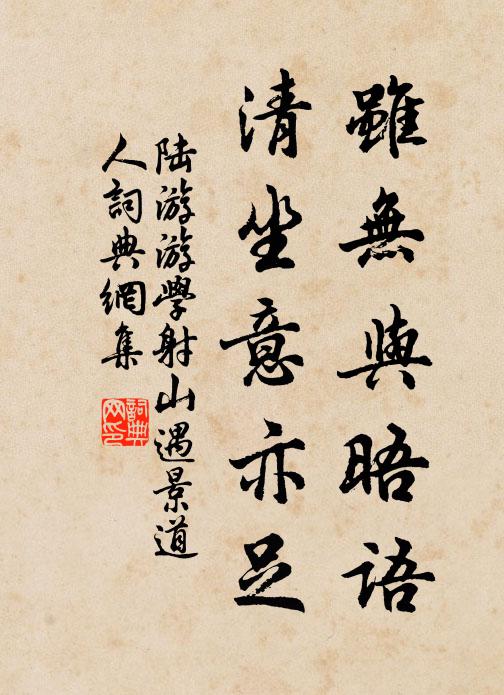 雖無與晤語
清坐意亦足
陆游游學射山遇景道
人詞典網集
詞典
网印